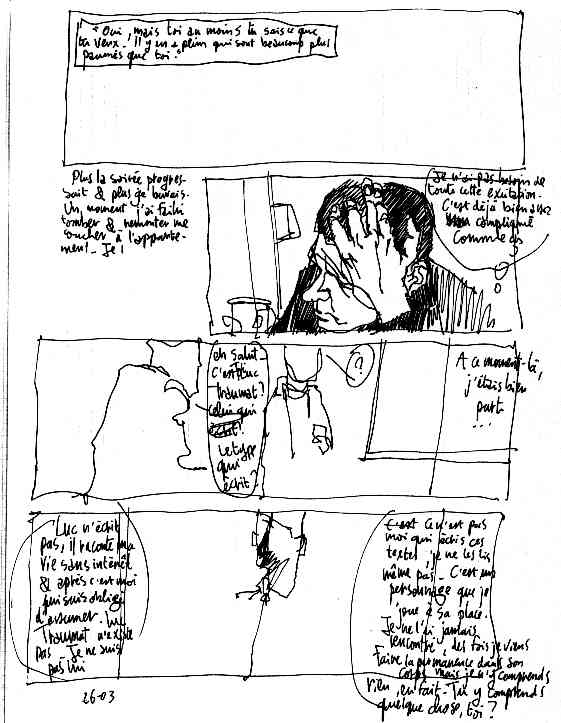 "Oui, mais toi au moins tu sais ce que
tu veux. Il y en a plein qui sont beaucoup plus
paumés que toi."
Plus la soirée progres-
sait & plus je buvais.
Un moment j'ai failli
tomber & remonter me
coucher à l'apparte-
ment. Je !
Je n'ai pas besoin de
toute cette excitation.
C'est déjà bien assez
compliqué
comme ça
eh salut
c'est Luc
Traumat?
celui qui
écrit?
Le type
qui
écrit?
?
A ce moment-là,
j'étais bien
parti
...
Luc n'écrit
pas, il raconte ma
vie sans intérêt
& après c'est moi
qui suis obligé
d'assumer. Luc
Traumat n'existe
pas. Je ne suis
pas lui
C'est Ce n'est pas
moi qui écris ces
textes, je ne les lis
même pas. C'est un
personnage que je
joue à sa place.
Je ne l'ai jamais
rencontré, des fois je viens
faire la permanence dans son
corps mais je n'y comprends
rien, en fait. Tu y comprends
quelque chose, toi?
26-03